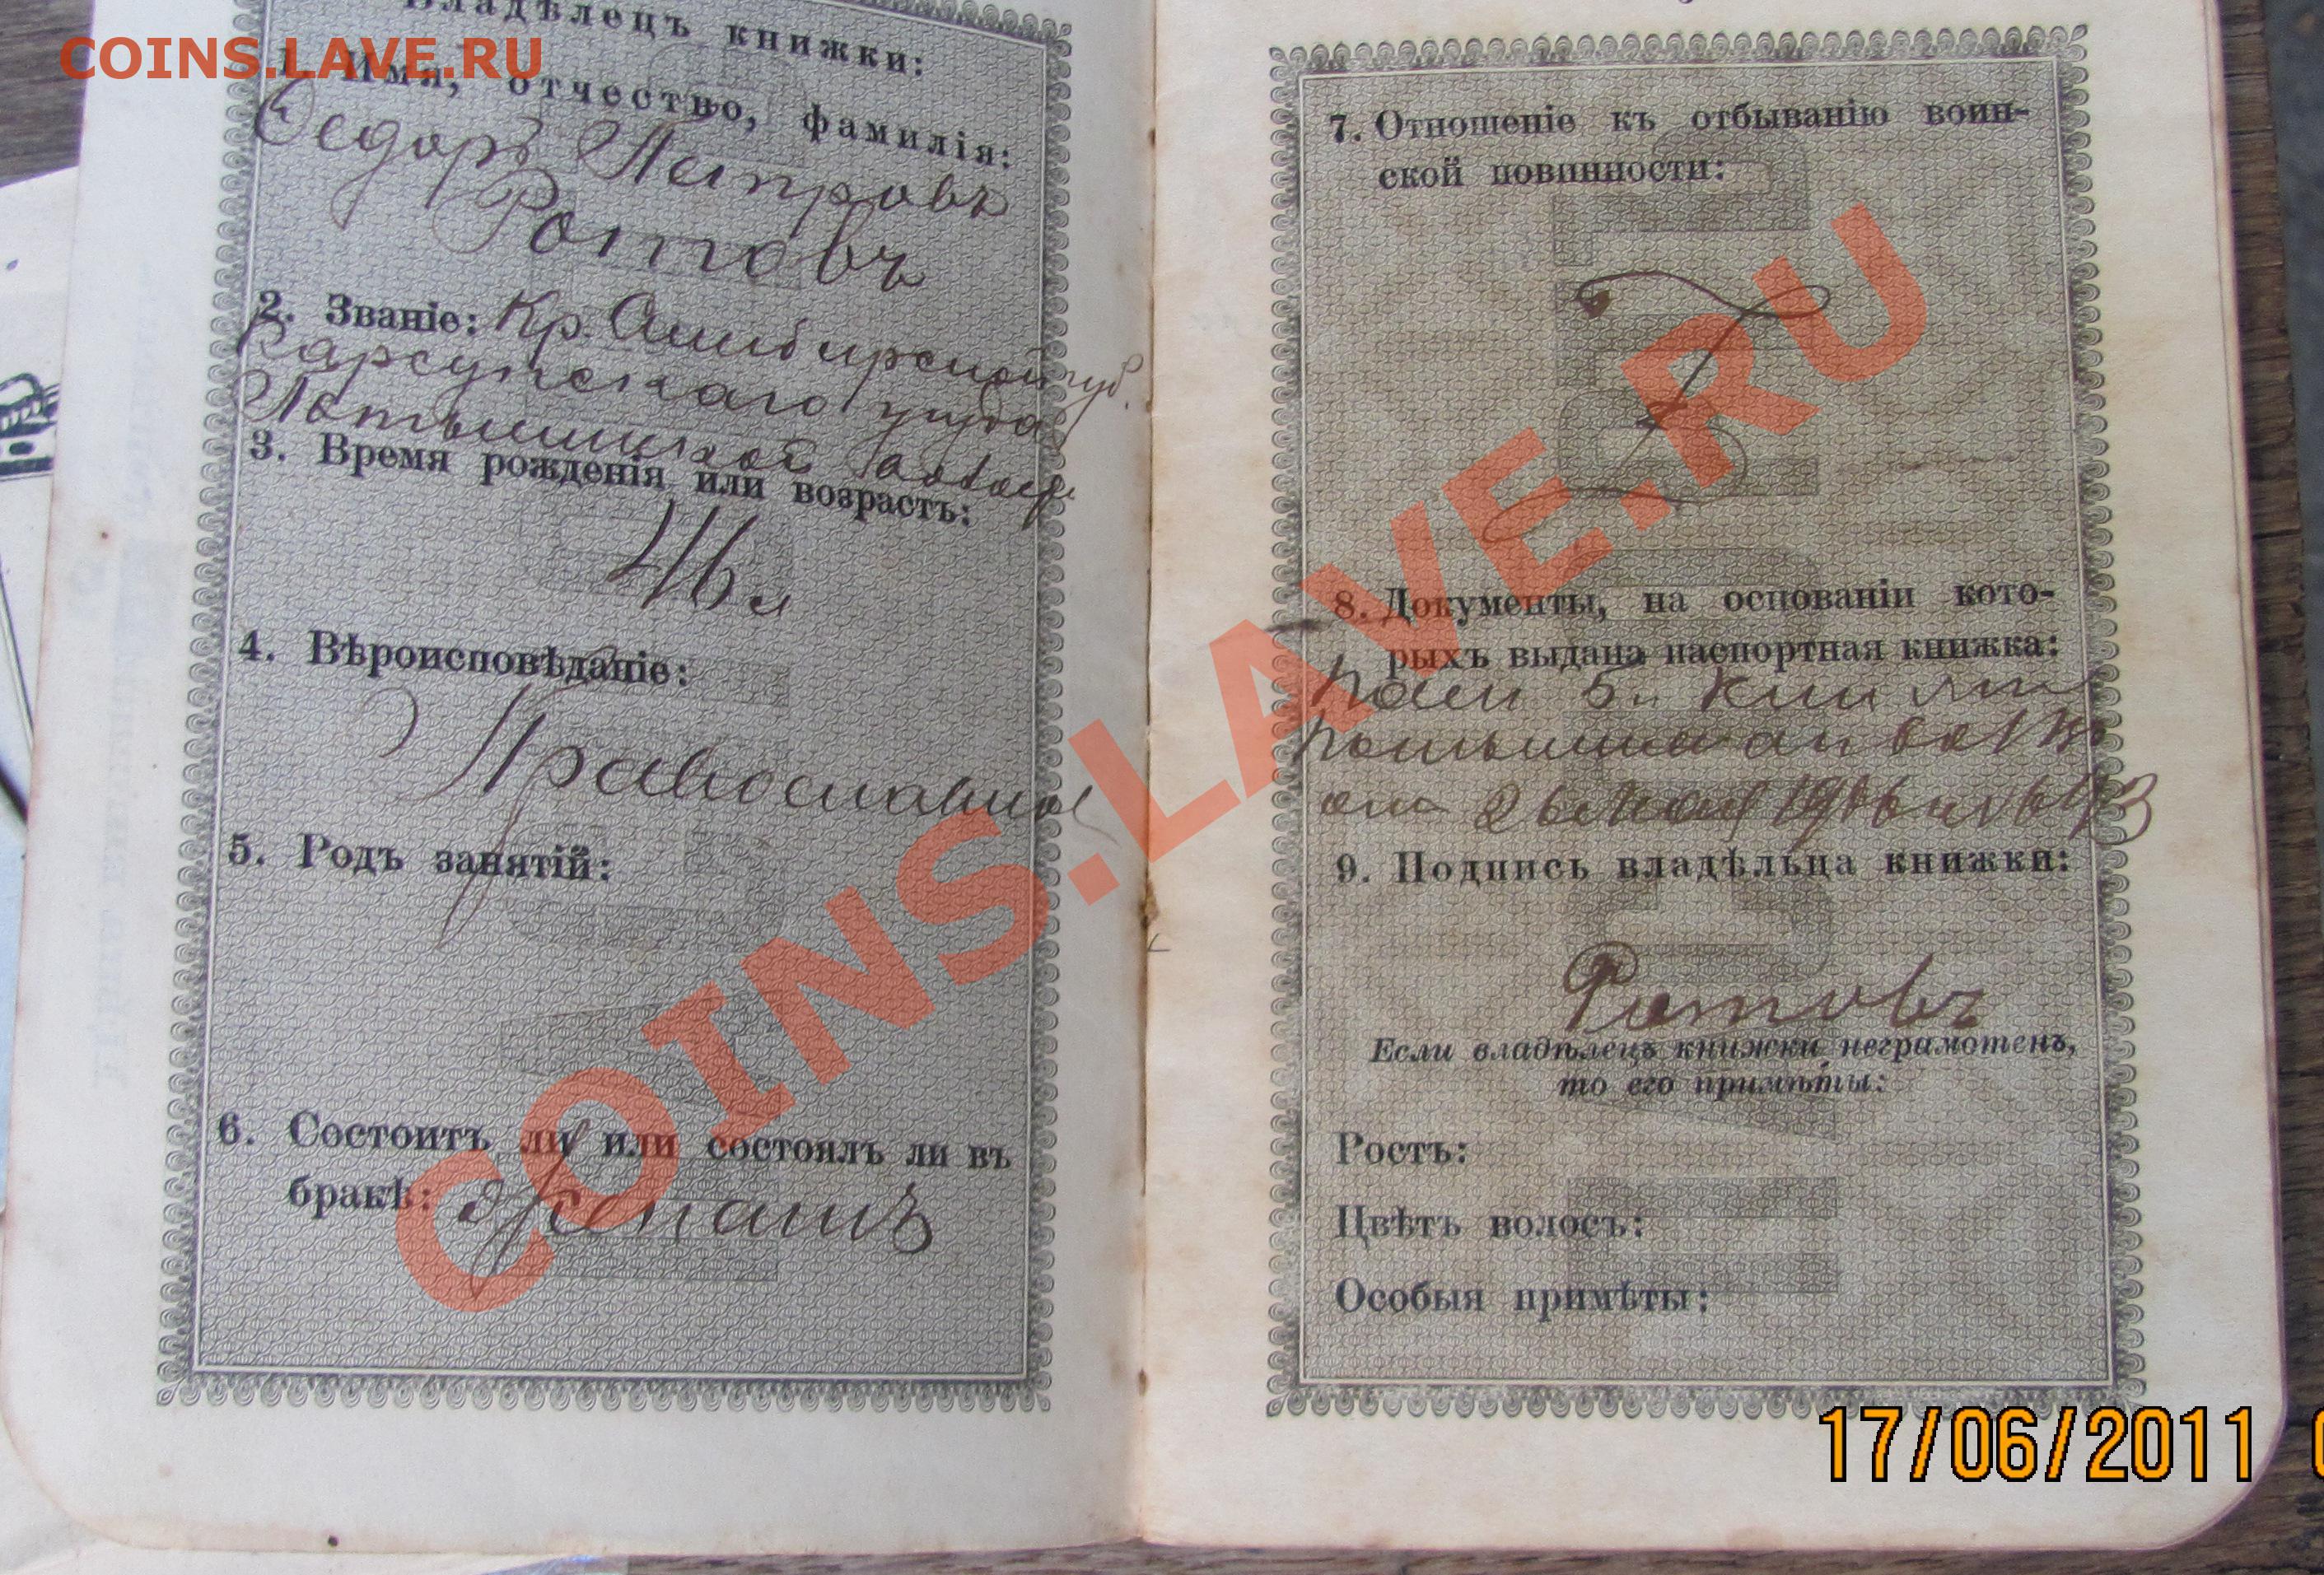 COINS.LAVE.RU
Владѣлецъ книжки:
1. Имя, отчество, фамилія:
Ѳедоръ Петровъ
Ротовъ
2. Званіе: Кр. Симбирской губ.
Карсунскаго уѣзда
3. Время рожденія или возрастъ:
46 л
4. Вѣроисповѣданіе:
Православное
5. Родъ занятій:
6. Состоитъ ли или состоялъ ли въ
бракѣ: Женатъ
7. Отношеніе къ отбыванію воин-
ской повинности:
8. Документы, на основаніи кото-
рыхъ выдана паспортная книжка:
9. Подпись владѣльца книжки:
Ротовъ
Если владѣлецъ книжки неграмотенъ,
то его примѣты:
Ростъ:
Цвѣтъ волосъ:
Особыя примѣты:
COINS.LAVE.RU
17/06/2011